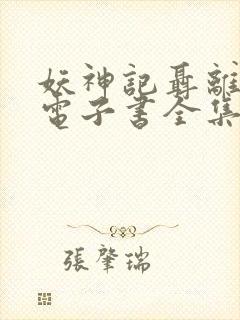 妖神記聶離
電子書全集
張肇瑞